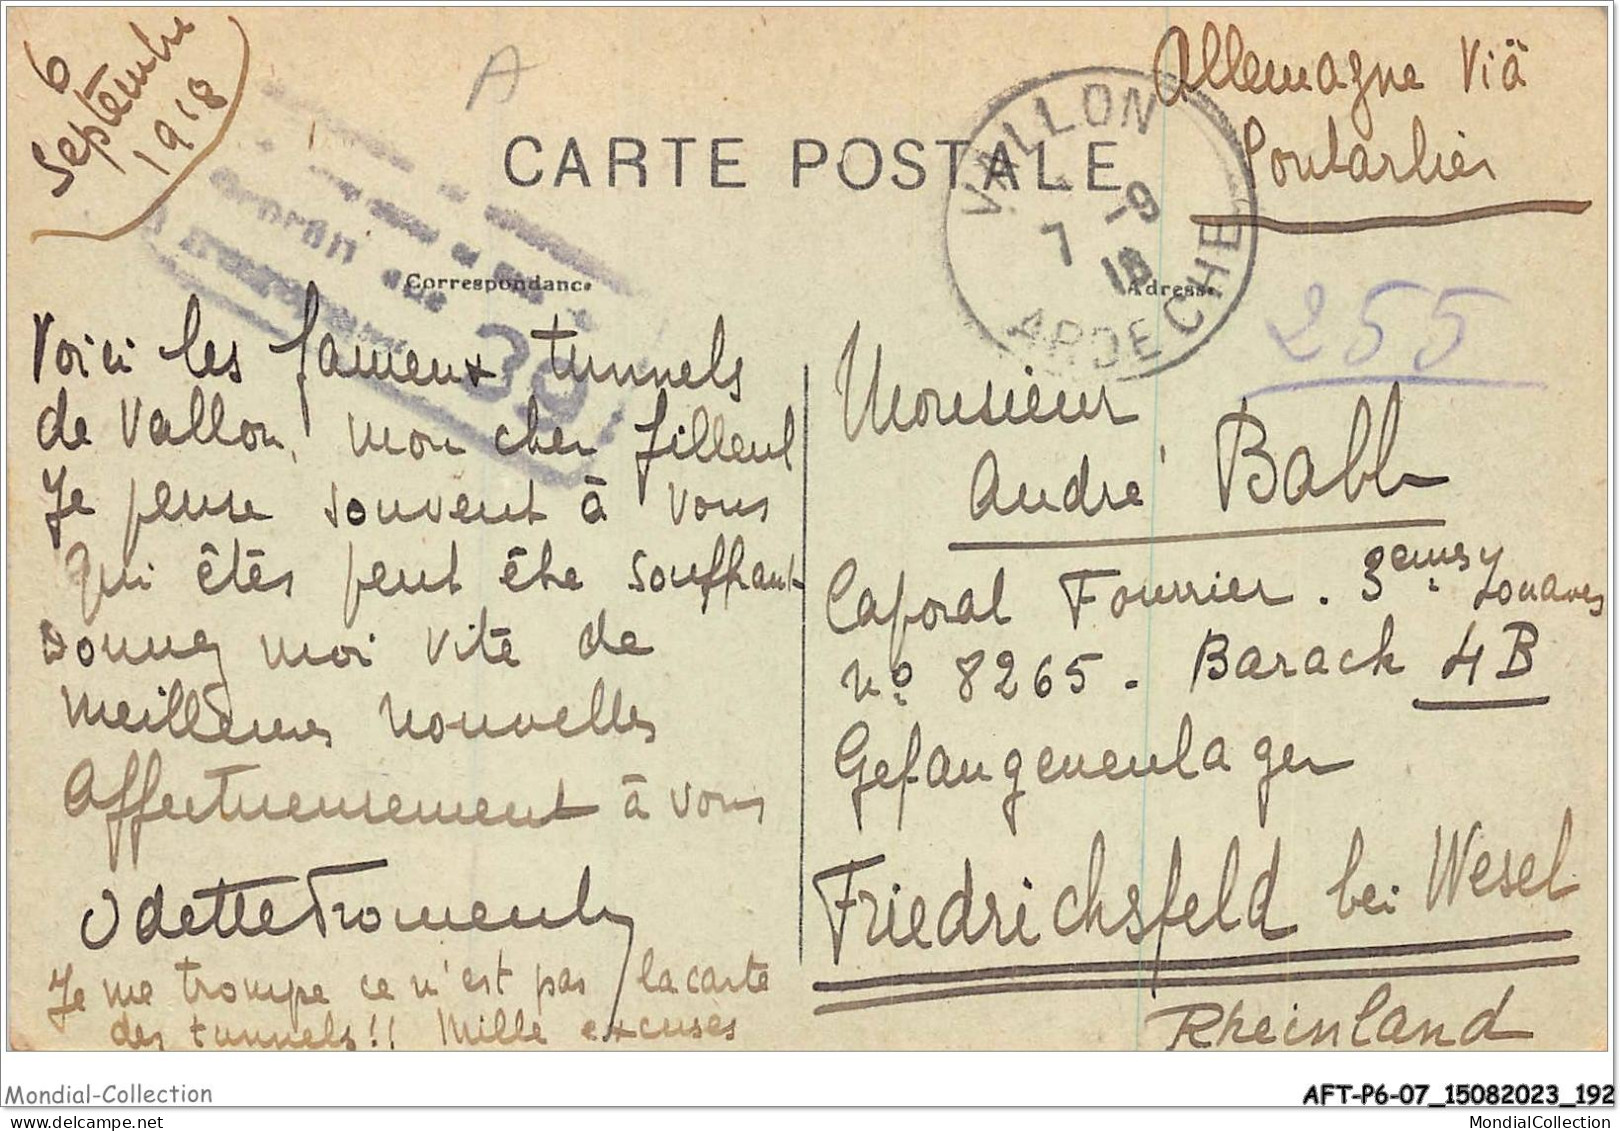 6
Septembre
1918
A
CARTE POSTALE
VALLON
7 -9
18
ARDECHE
Allemagne Viä
Pontarlier
Correspondance
Adresse
255
39
Voici les fameux tunnels
de Vallon, mon cher filleul
Je pense souvent à vous
qui êtes peut être souffrant
Donnez moi vite de
meilleures nouvelles
Affectueusement à vous
Odette Fromently
Je me trompe ce n'est pas la carte
des tunnels!! Mille excuses
Monsieur
André Babb
Caporal Fourrier. 3emes Zouaves
no 8265 - Barack 4B
Gefangenenlager
Friedrichsfeld bei Wesel
Rheinland
Mondial-Collection
AFT-P6-07_15082023_192
MondialCollection